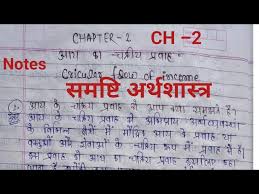 CHAPTER-2
CH –2
आय का चक्रीय प्रवाह
Notes
Cricular flow of income
समष्टि अर्थशास्त्र
आय के चक्रीय प्रवाह से आप क्या समझते हैं।
आय के चक्रीय प्रवाह से अभिप्राय अर्थव्यवस्था
के विभिन्न क्षेत्रों में मौद्रिक आय के प्रवाह या
वस्तुओं और सेवाओं के चक्रीय रूप में प्रवाह से है।